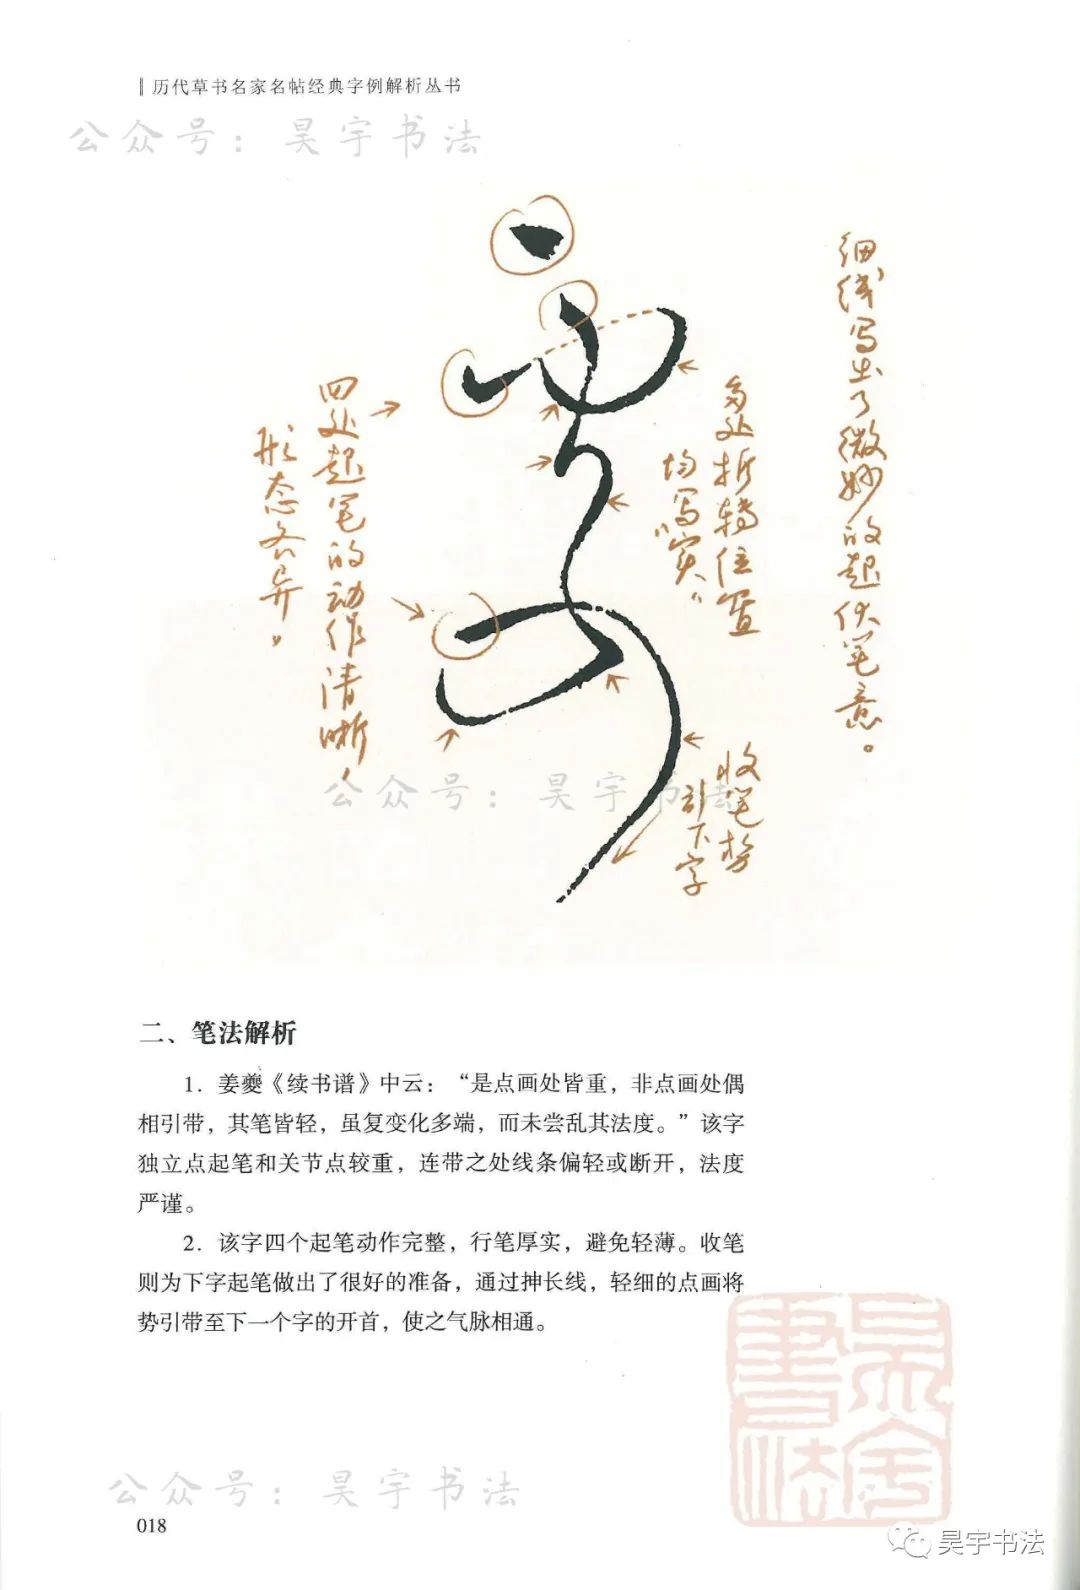 历代草书名家名帖经典字例解析丛书
公众号：昊宇书法
细线写出了微妙的起伏笔意。
多处折转位置
均写“实”
四处起笔的动作清晰，
形态各异。
收笔势
引下字
公众号：昊宇书法
二、笔法解析
1．姜夔《续书谱》中云：“是点画处皆重，非点画处偶
相引带，其笔皆轻，虽复变化多端，而未尝乱其法度。”该字
独立点起笔和关节点较重，连带之处线条偏轻或断开，法度
严谨。
2．该字四个起笔动作完整，行笔厚实，避免轻薄。收笔
则为下字起笔做出了很好的准备，通过抻长线，轻细的点画将
势引带至下一个字的开首，使之气脉相通。
昊宇書法
公众号：昊宇书法
018
昊宇书法